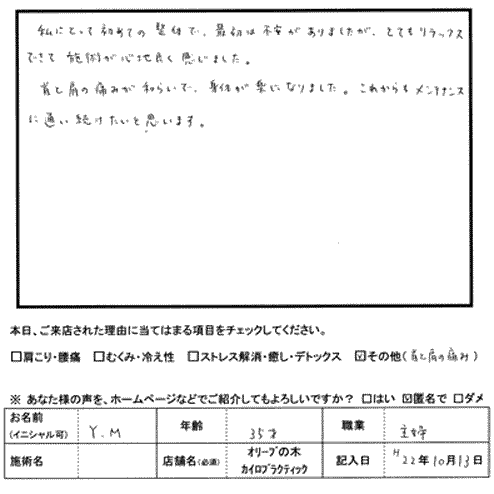 私にとって初めての整体で、最初は不安がありましたが、とてもリラックス
できて施術が心地良く感じました。
首と肩の痛みが和らいで、身体が楽になりました。これからもメンテナンス
に通い続けたいと思います。
本日、ご来店された理由に当てはまる項目をチェックしてください。
□肩こり・腰痛 □むくみ・冷え性 □ストレス解消・癒し・デトックス ☑その他(首と肩の痛み)
※ あなた様の声を、ホームページなどでご紹介してもよろしいですか? □はい ☒匿名で □ダメ
お名前
(イニシャル可) Y.M 年齢 35才 職業 主婦
施術名 店舗名(必須) オリーブの木
カイロプラクティック 記入日 H22年10月13日